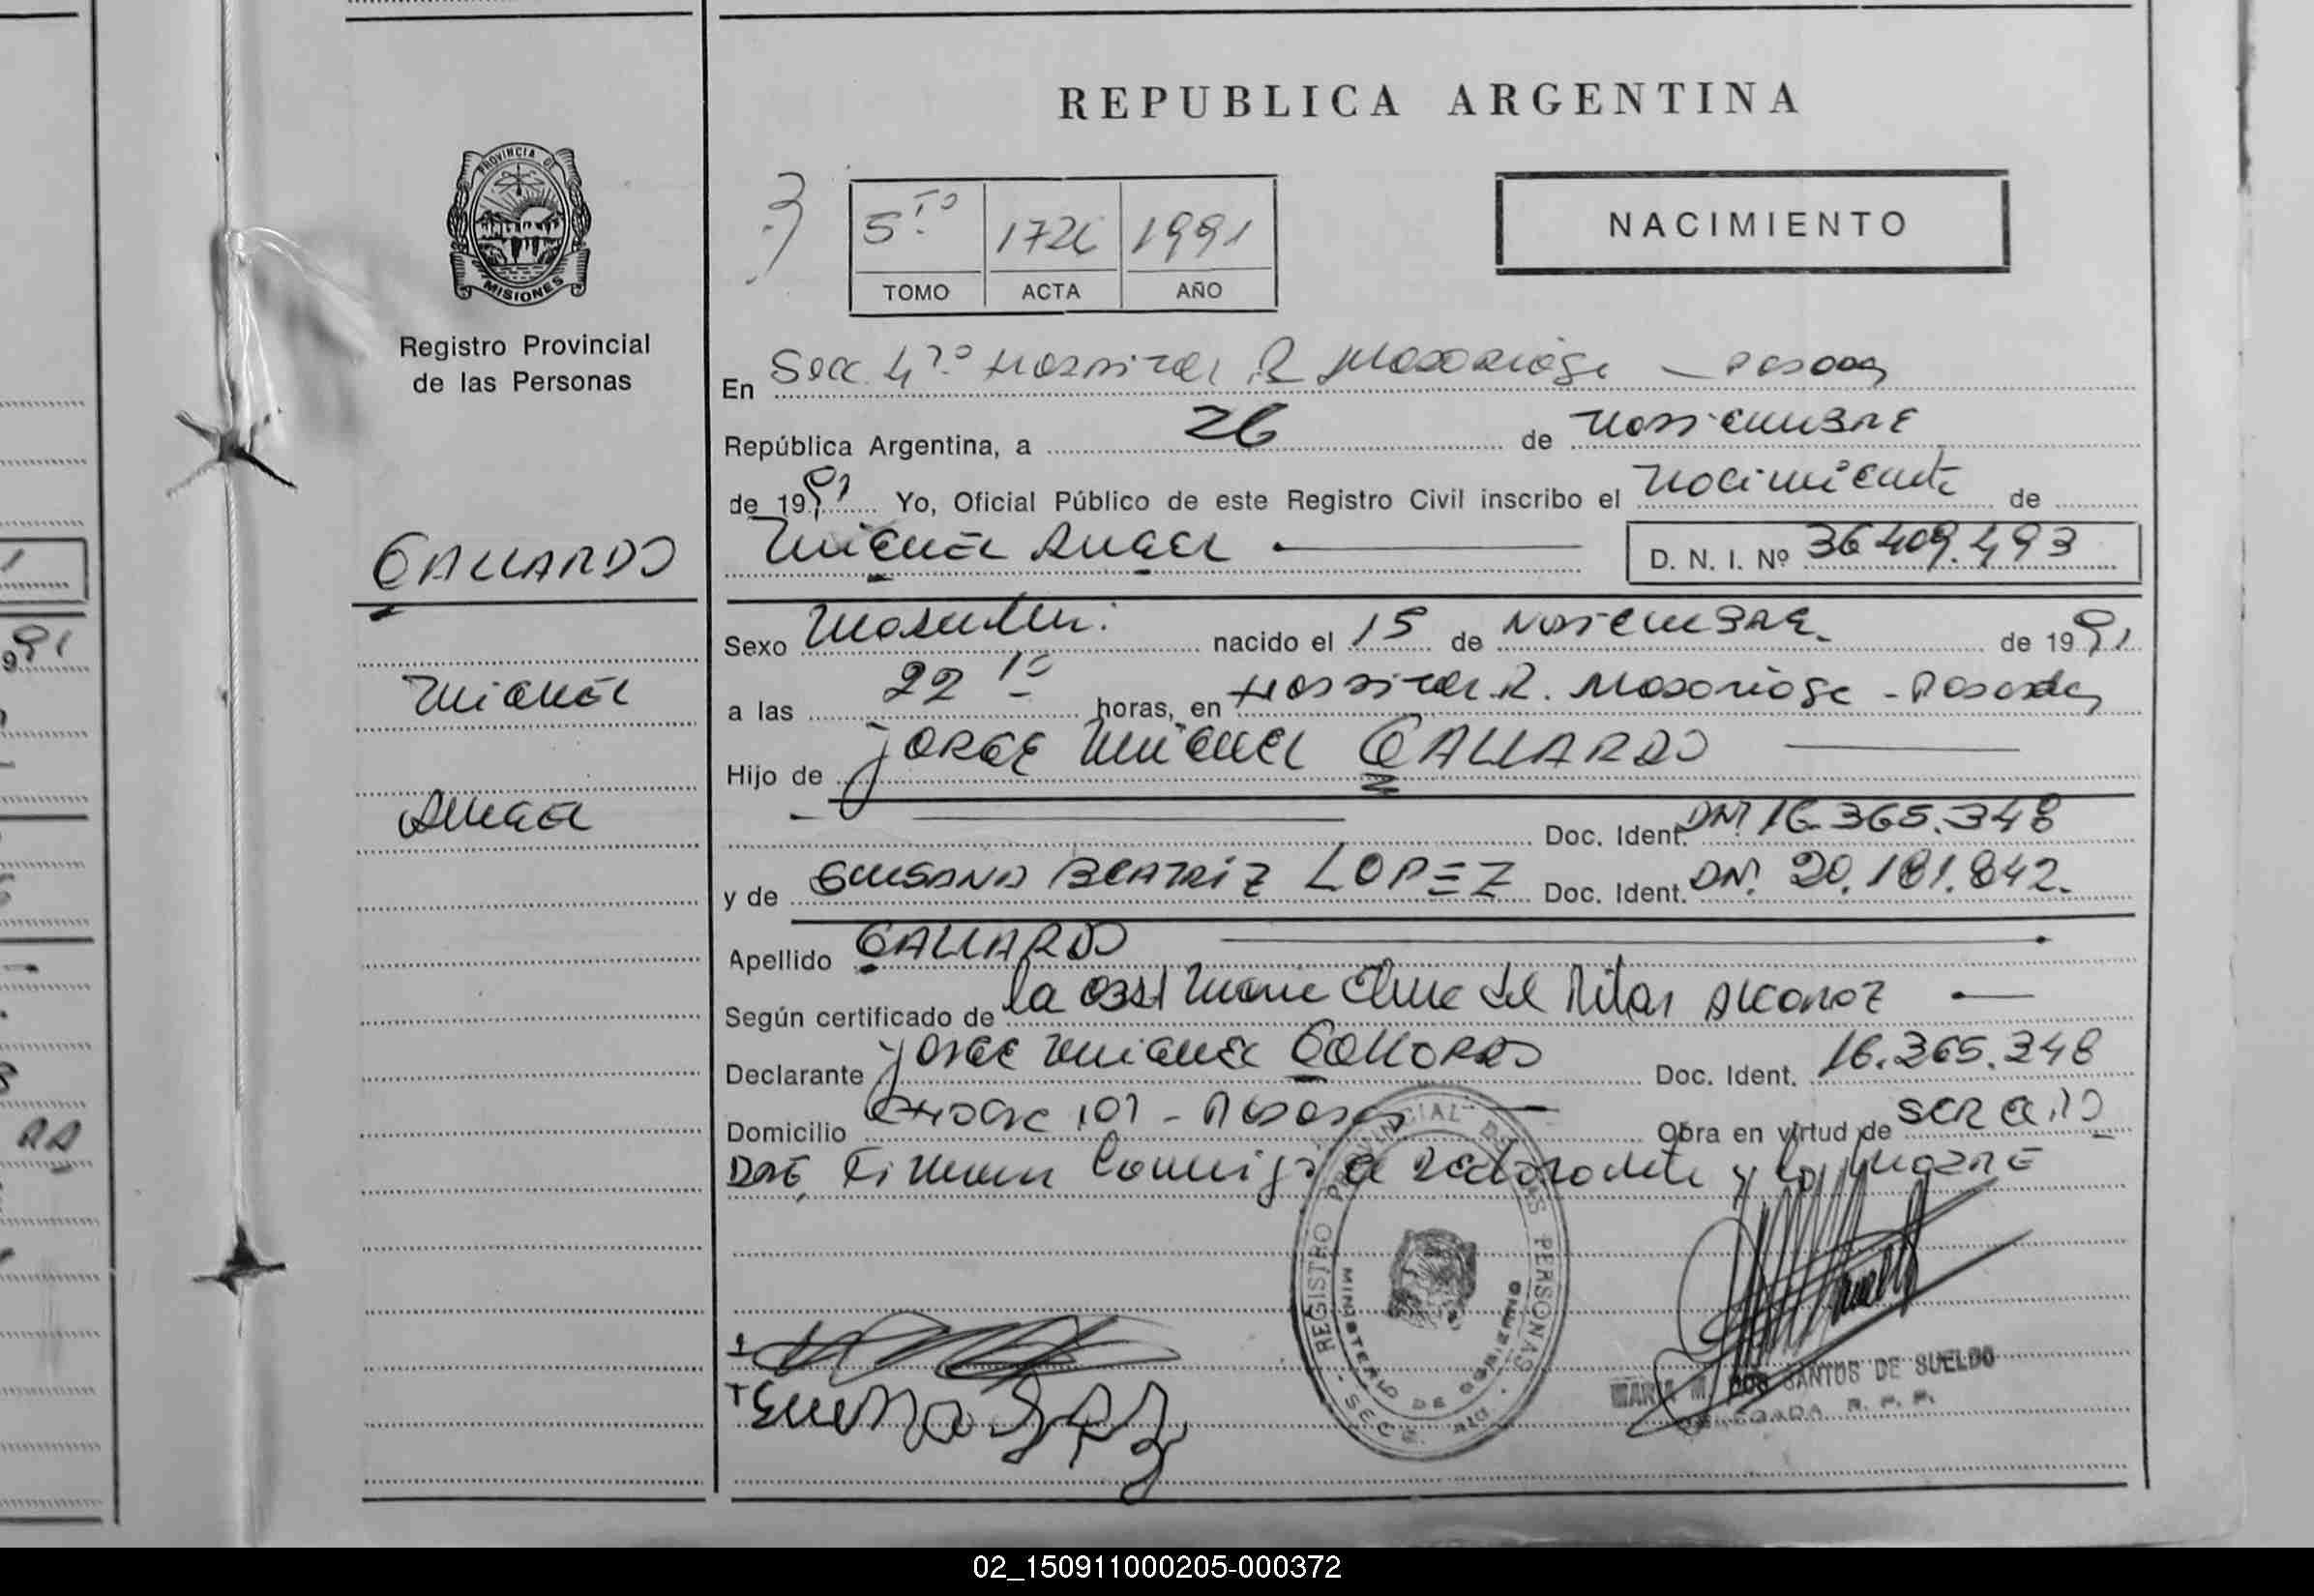 REPUBLICA ARGENTINA
PROVINCIA DE
MISIONES
Registro Provincial
de las Personas
NACIMIENTO
5to 1726 1991
TOMO ACTA AÑO
En Secc 4ta Hospital R Madariaga - Posadas
República Argentina, a 26 de Noviembre
de 1991 Yo, Oficial Público de este Registro Civil inscribo el Nacimiento de
Miguel Angel D. N. I. Nº 36.409.493
GALLARDO
Miguel
Angel
Sexo Masculino nacido el 15 de Noviembre de 1991
a las 22 10 horas, en Hospital R. Madariaga - Posadas
Hijo de Jorge Miguel GALLARDO
Doc. Ident. DNI 16.365.348
y de Susana Beatriz LOPEZ Doc. Ident. DNI. 20.181.842.
Apellido GALLARDO
Según certificado de la Obst Maria del Pilar
Declarante Jorge Miguel Gallardo Doc. Ident. 16.365.348
Domicilio 101 - Posadas Obra en virtud de ser el
Padre, Firman Conmigo el declarante y la madre
REGISTRO PROVINCIAL DE LAS PERSONAS
MINISTERIO DE GOBIERNO
MARIA M. DOS SANTOS DE SUELDO
DELEGADA R. P. P.
02_150911000205-000372